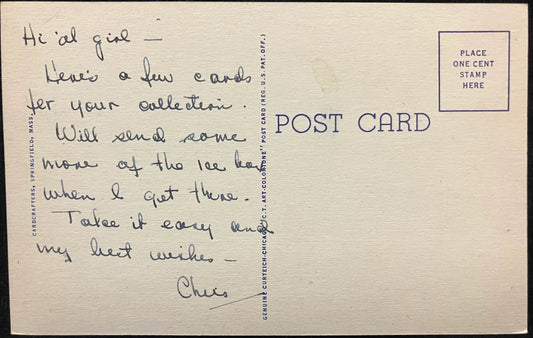 Hi 'ol girl —
Here's a few cards
for your collection.
Will send some
more of the Ice
when I get there.
Take it easy and
my best wishes —
Chris
CARDCRAFTERS, SPRINGFIELD, MASS.
GENUINE CURTEICH-CHICAGO "C.T. ART-COLORTONE" POST CARD (REG. U.S. PAT. OFF.)
POST CARD
PLACE
ONE CENT
STAMP
HERE